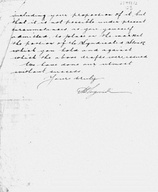 including your proportion of it, but
that it is not possible under present
circumstances as you yourself
admitted, to place on the market
the portion of the Syndicate's stock
which you hold and against
which the above drafts were issued
We have done our utmost
without success.
Yours truly,